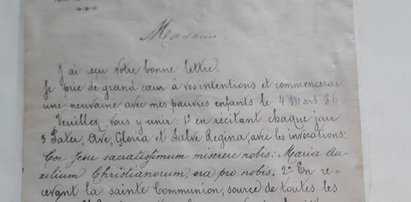 Madame
J'ai reçu Votre bonne lettre.
Je prie de grand cœur à vos intentions et commencerai
une neuvaine avec mes pauvres enfants le 4 Mars 86
Veuillez vous y unir: 1º en récitant chaque jour
3 Pater, Ave, Gloria et Salve Regina, avec les invocations:
Cor Jesu sacratissimum miserere nobis: Maria Au-
xilium Christianorum, ora pro nobis. 2º En re-
cevant la sainte Communion, source de toutes les